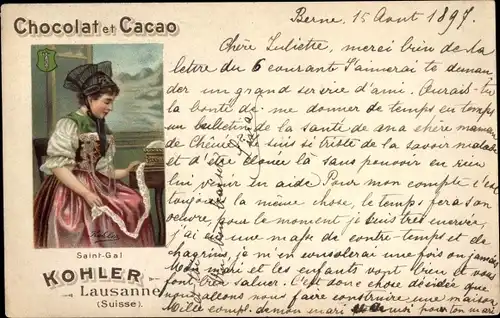 Chocolat et Cacao
Saint-Gal
KOHLER
Lausanne
(Suisse).
Berne. 15 Aout 1897.
Chère Juliette, merci bien de la
lettre du 6 courant J'aimerai te deman-
der un grand service d'ami. Aurais-tu
la bonté de me donner de temps en temps
un bulletin de la santé de ma chère maman
de Je suis si triste de la savoir malade
et d'être là sans pouvoir en rien
lui venir en aide Pour mon compte c'est
toujours la même chose, le temps fera son
oeuvre, pour le moment je suis très énervée,
j'ai eu une masse de contre-temps et de
chagrins, je m'en consolerai une fois ou jamais
Mon mari et les enfants vont bien et vous
font bien saluer. C'est donc chose décidée que
nous allons nous faire construire une maison.
Mille compl. de mon mari et pour ton mari